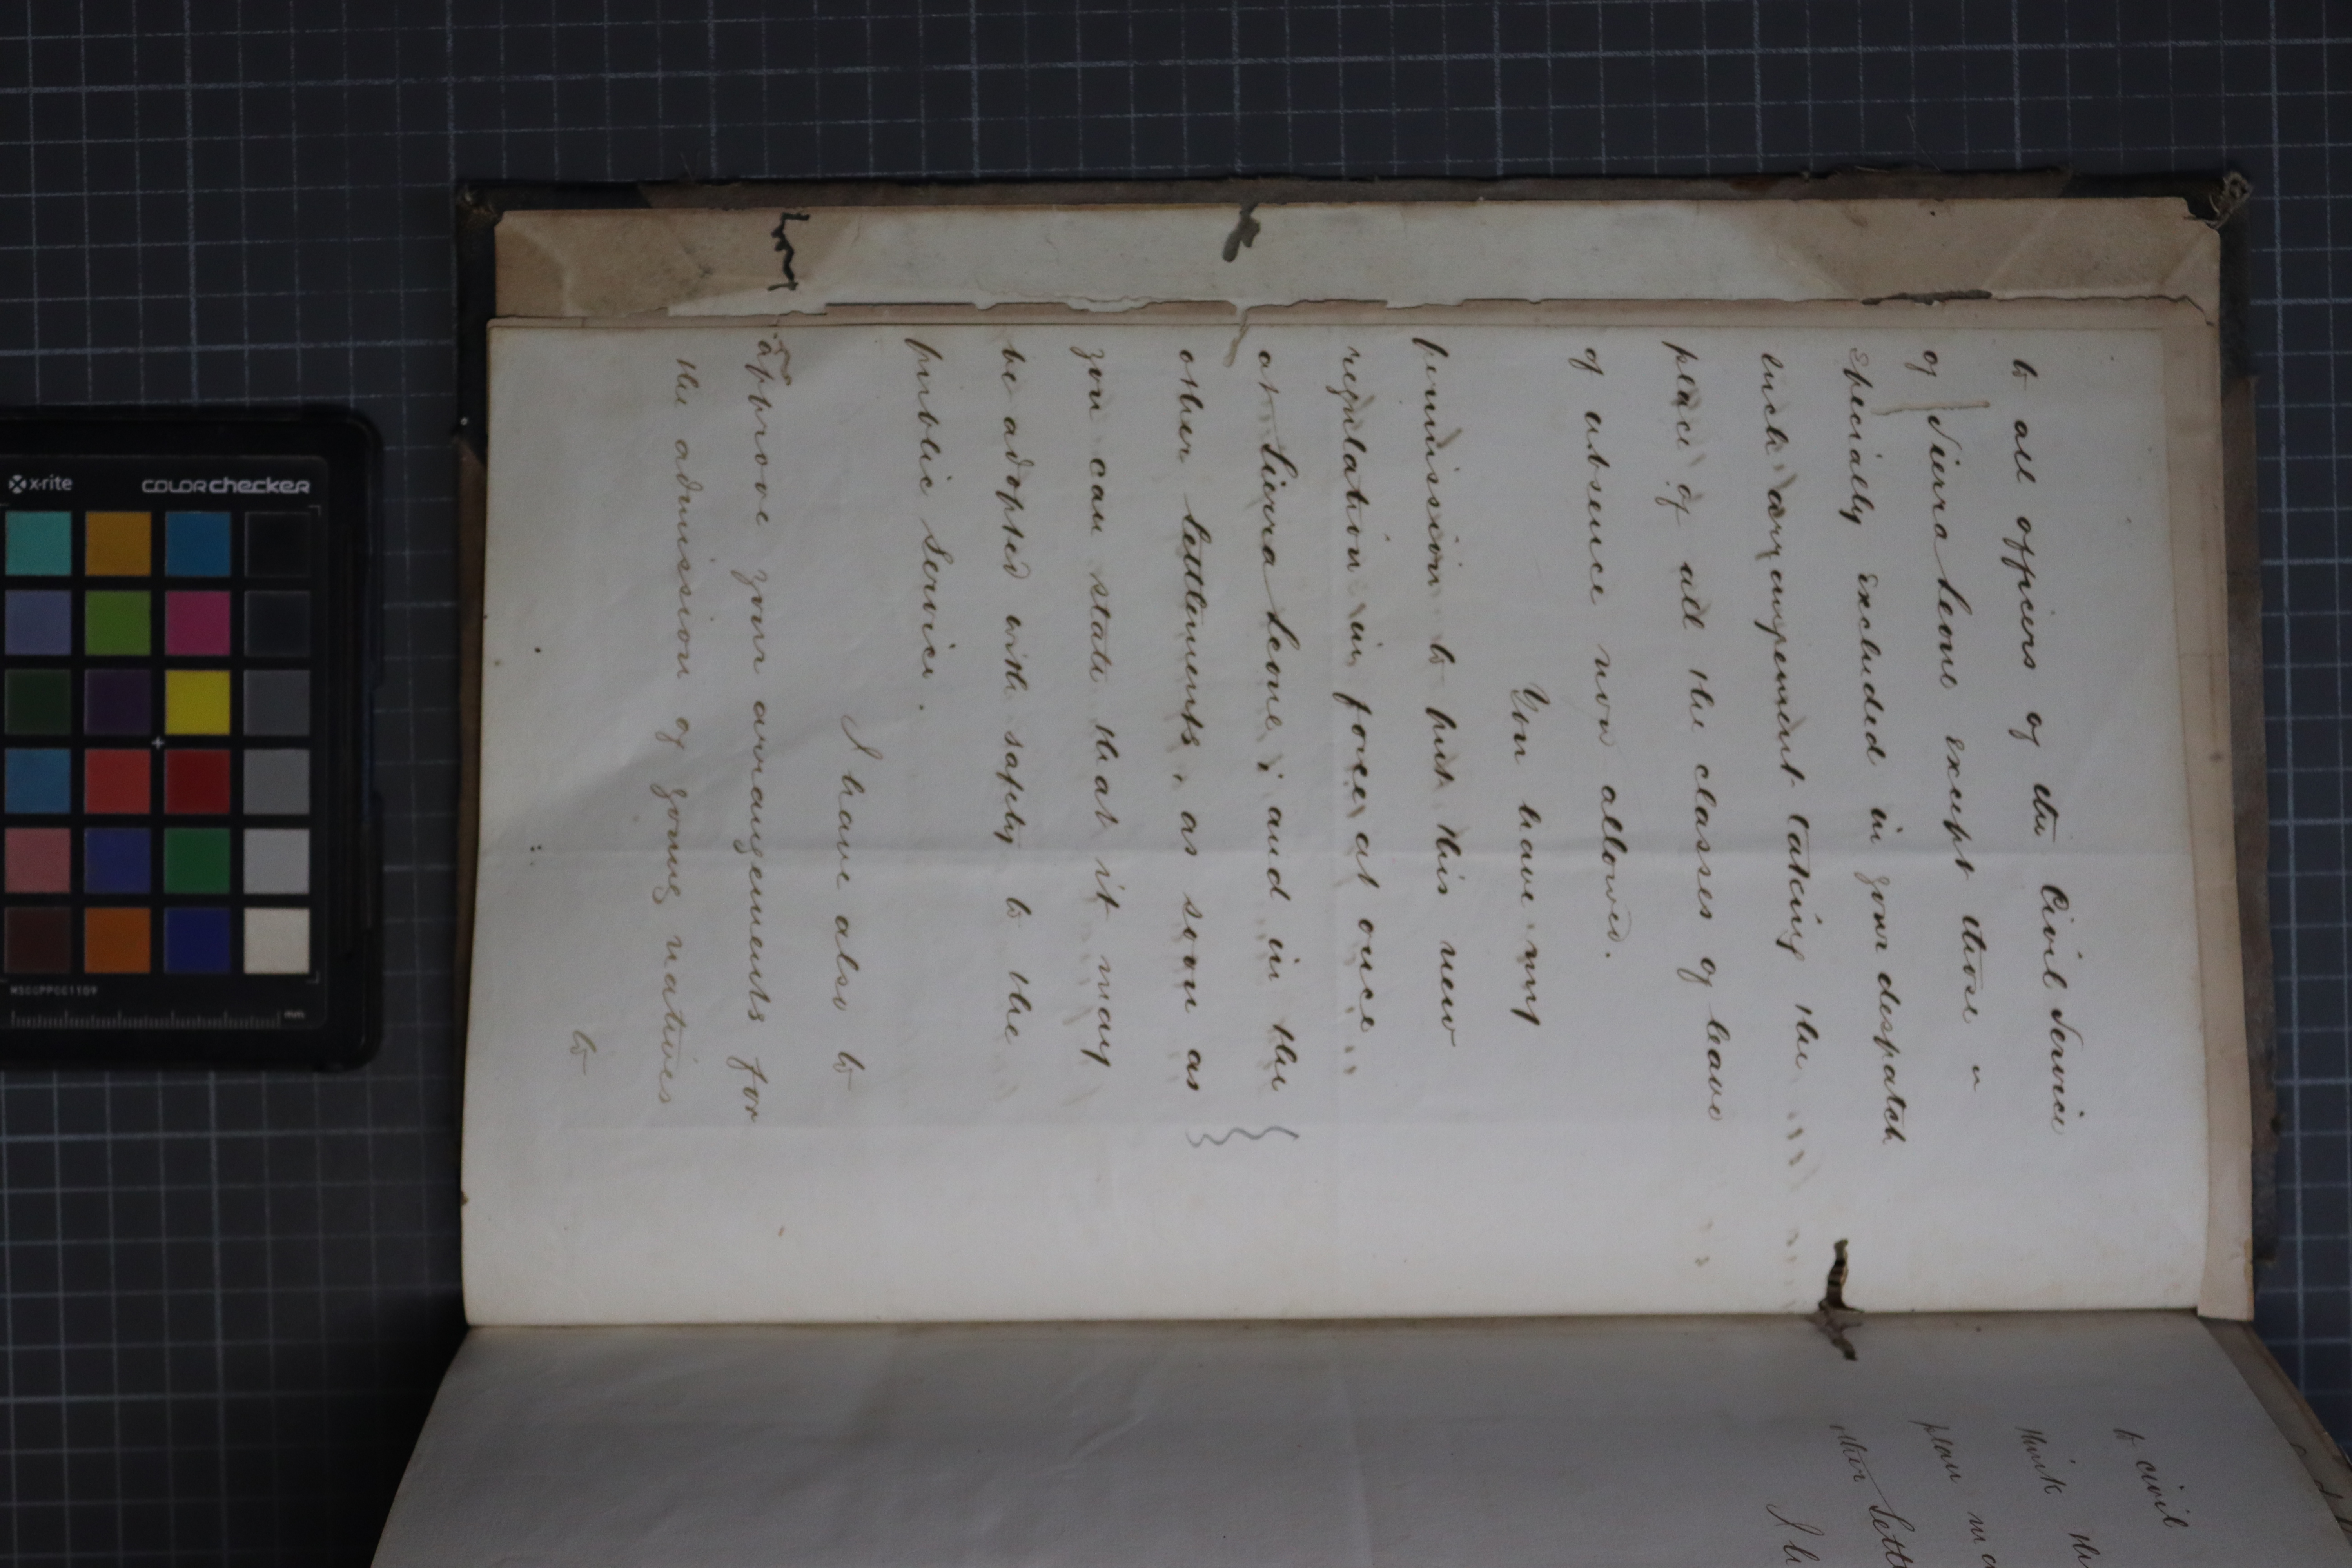 to all officers of the Civil Service
of Sierra Leone except those
specially excluded in your despatch
such arrangement taking the
place of all the classes of leave
of absence now allowed.
You have my
permission to put this new
regulation in force at once
at Sierra Leone; and in the
other Settlements, as soon as
you can state that it may
be adopted with safety to the
public Service.
I have also to
approve your arrangements for
the admission of young natives
to
to civil
think th
plan ma
other Settl
I h
x-rite
colorchecker
mm